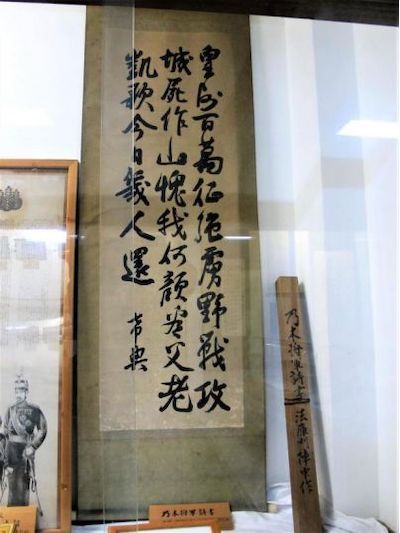 皇師百萬征強虜野戰攻
城屍作山愧我何顏看父老
凱歌今日幾人還
希典
乃木将軍詩書
法庫門陣中作
乃木将軍詩書